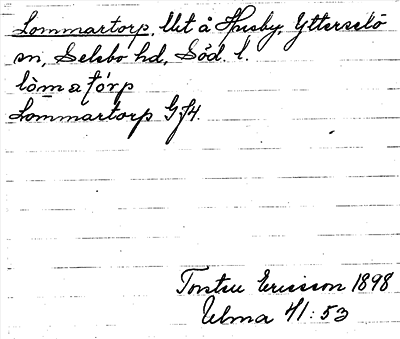 Lommartorp, llht å Husby, Ytterselö
sn, Selebo hd, Söd. l.
lòmatórp
Lommartorp Gf4.
Torsten Ericsson 1898
Ulma 41:53